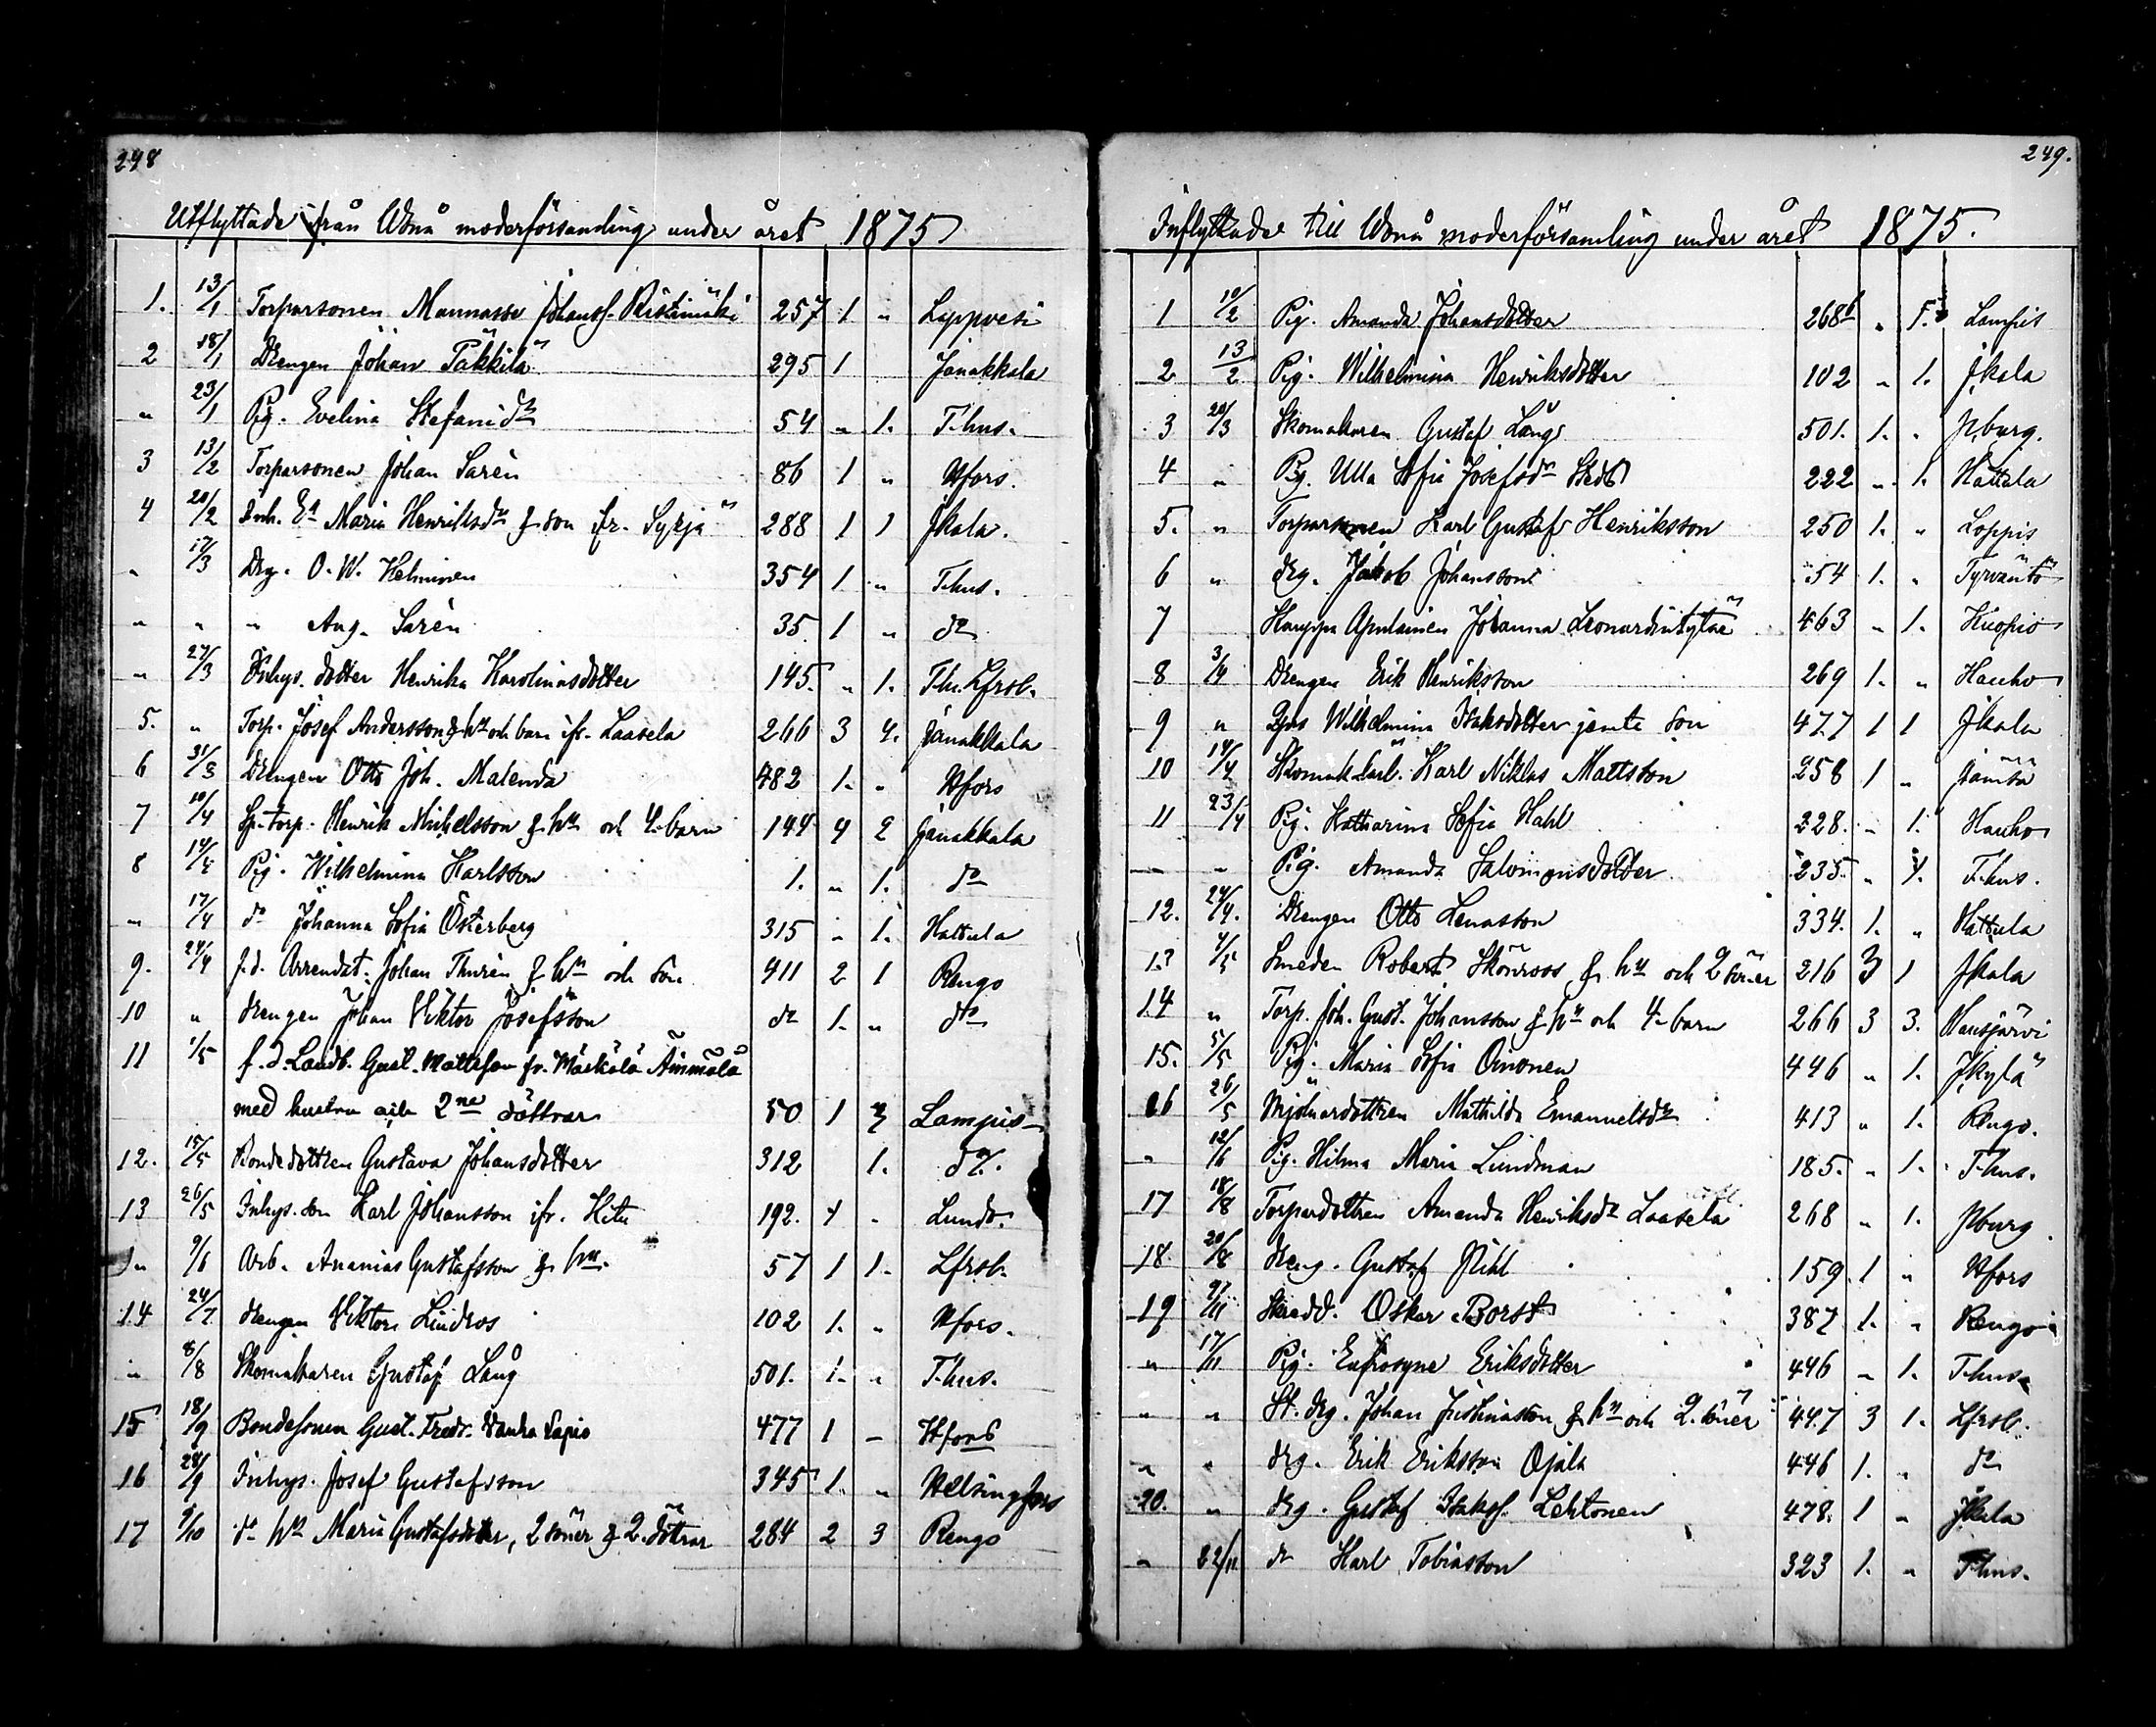 248
Utflyttade ifrån Wånå moderförsamling under året 1875
1. 13/1 Torparsonen Mannasse Johanss. Ristimäki 257 1 " Lappvesi
2 18/1 Drengen Johan Päkkilä 295 1 Janakkala
" 23/1 Pig. Evelina Stefanidr 54 " 1. T.hus.
3 13/2 Torparsonen Johan Sarén 86 1 " Hfors.
4 20/2 Inh. Ea Maria Henriksdr & son fr. Syrjä 288 1 1 Jkala.
" 17/3 Drg. O. W. Helminen 354 1 " T.hus.
" " " Aug. Sarén 35 1 " do
" 27/3 Inhys. dotter Henrika Karolinasdotter 145. " 1. T.hs. Lfrsb.
5. " Torp. Josef Andersson & hu och barn ifr. Laasela 266 3 4. Janakkala
6 31/3 Drengen Otto Joh. Malenda 482 1. " Hfors
7 10/4 Sp. torp. Henrik Michelsson & hu och 4. barn 144 4 2 Janakkala
8 14/4 Pig. Wilhelmina Karlsson 1. " 1. do
" 17/4 do Johanna Sofia Österberg 315 " 1. Hattula
9. 24/4 f.d. Arrendat. Johan Thurén & hu och son 411 2 1 Rengo
10 " drengen Johan Viktor Josefsson do 1. " do
11 1/5 f.d. Landb. Gust. Mattsson fr. Mäskälä Äimälä
med hustru och 2ne döttrar 50 1 3 Lampis
12. 15/5 Bondedottren Gustava Johansdotter 312 1. do.
13 26/5 Inhys. son Karl Johansson ifr. Hitu 192. 1 " Lundo.
" 9/6 Arb. Ananias Gustafsson & hu. 57 1 1. Lfrsb.
14 24/7 drengen Viktor Lindros 102 1. " Hfors.
" 8/8 Skomakaren Gustaf Lång 501. 1. " T.hus.
15 18/9 Bondesonen Gust. Fredr. Vanha Sapio 477 1 – Hfors
16 28/9 Inhys. Josef Gustafsson 345 1. " Helsingfors
17 9/10 do hu Maria Gustafsdotter, 2 söner & 2. döttrar 284 2 3 Rengo
249.
Inflyttade till Wånå moderförsamling under året 1875.
1 10/2 Pig. Amanda Johansdotter 268 " 1. Lampis
2 13/2 Pig. Wilhelmina Henriksdotter 102 " 1. Jkala
3 20/3 Skomakaren Gustaf Lång 501. 1. " Jpburg.
4 " Pig. Ulla Sofia Josefsdr Sted 222 " 1. Hattula
5. " Torparsonen Karl Gustaf Henriksson 250 1. " Loppis
6 " drg. Jakob Johansson 54 1. " Tyrväntö
7 Kauppa Apulainen Johanna Leonardintytär 463 " 1. Kuopio
8 3/4 Drengen Erik Henriksson 269 1. " Hauho
9 " Wilhelmina Isaksdotter jemte son 477 1 1 Jkala
10 14/4 Skomak. lärl. Karl Niklas Mattsson 258 1 " Jämsä
11 23/4 Pig. Katharina Sofia Hahl 228. " 1. Hauho
" " Pig. Amanda Salomonsdotter 235 " 1. T.hus.
12. 24/4. Drengen Otto Lenasson 334. 1. " Hattula
13 4/5 Smeden Robert Skönroos & hu och 2 söner 216 3 1 Jkala
14 " Torp. Joh. Gust. Johansson & hu och 4. barn 266 3 3. Hausjärvi
15. 5/5 Pig. Maria Sofia Oinonen 446 " 1. Jkylä
16 26/5 Mjölnardottren Mathilda Emanuelsdr 413 " 1. Rengo.
" 12/6 Pig. Hilma Maria Lundman 185. " 1. T.hus.
17 18/8 Torpardottren Amanda Henriksdr Laasela 268 " 1. Jpburg.
18. 20/8 dreng. Gustaf Pihl 159. 1 " Hfors
19 27/11 Skredd. Oskar Borst 387 1. " Rengo
" 17/11 Pig. Eufrosyne Eriksdotter 446 " 1. T.hus
" " St. drg. Johan Justinasson & hu och 2. söner 447 3 1. Lfrsb.
" " drg. Erik Eriksson Ojala 446 1. " do
20. " drg. Gustaf Isakss. Lehtonen 478. 1 " Jkala
" 22/11. do Karl Tobiasson 323 1. " T.hus.